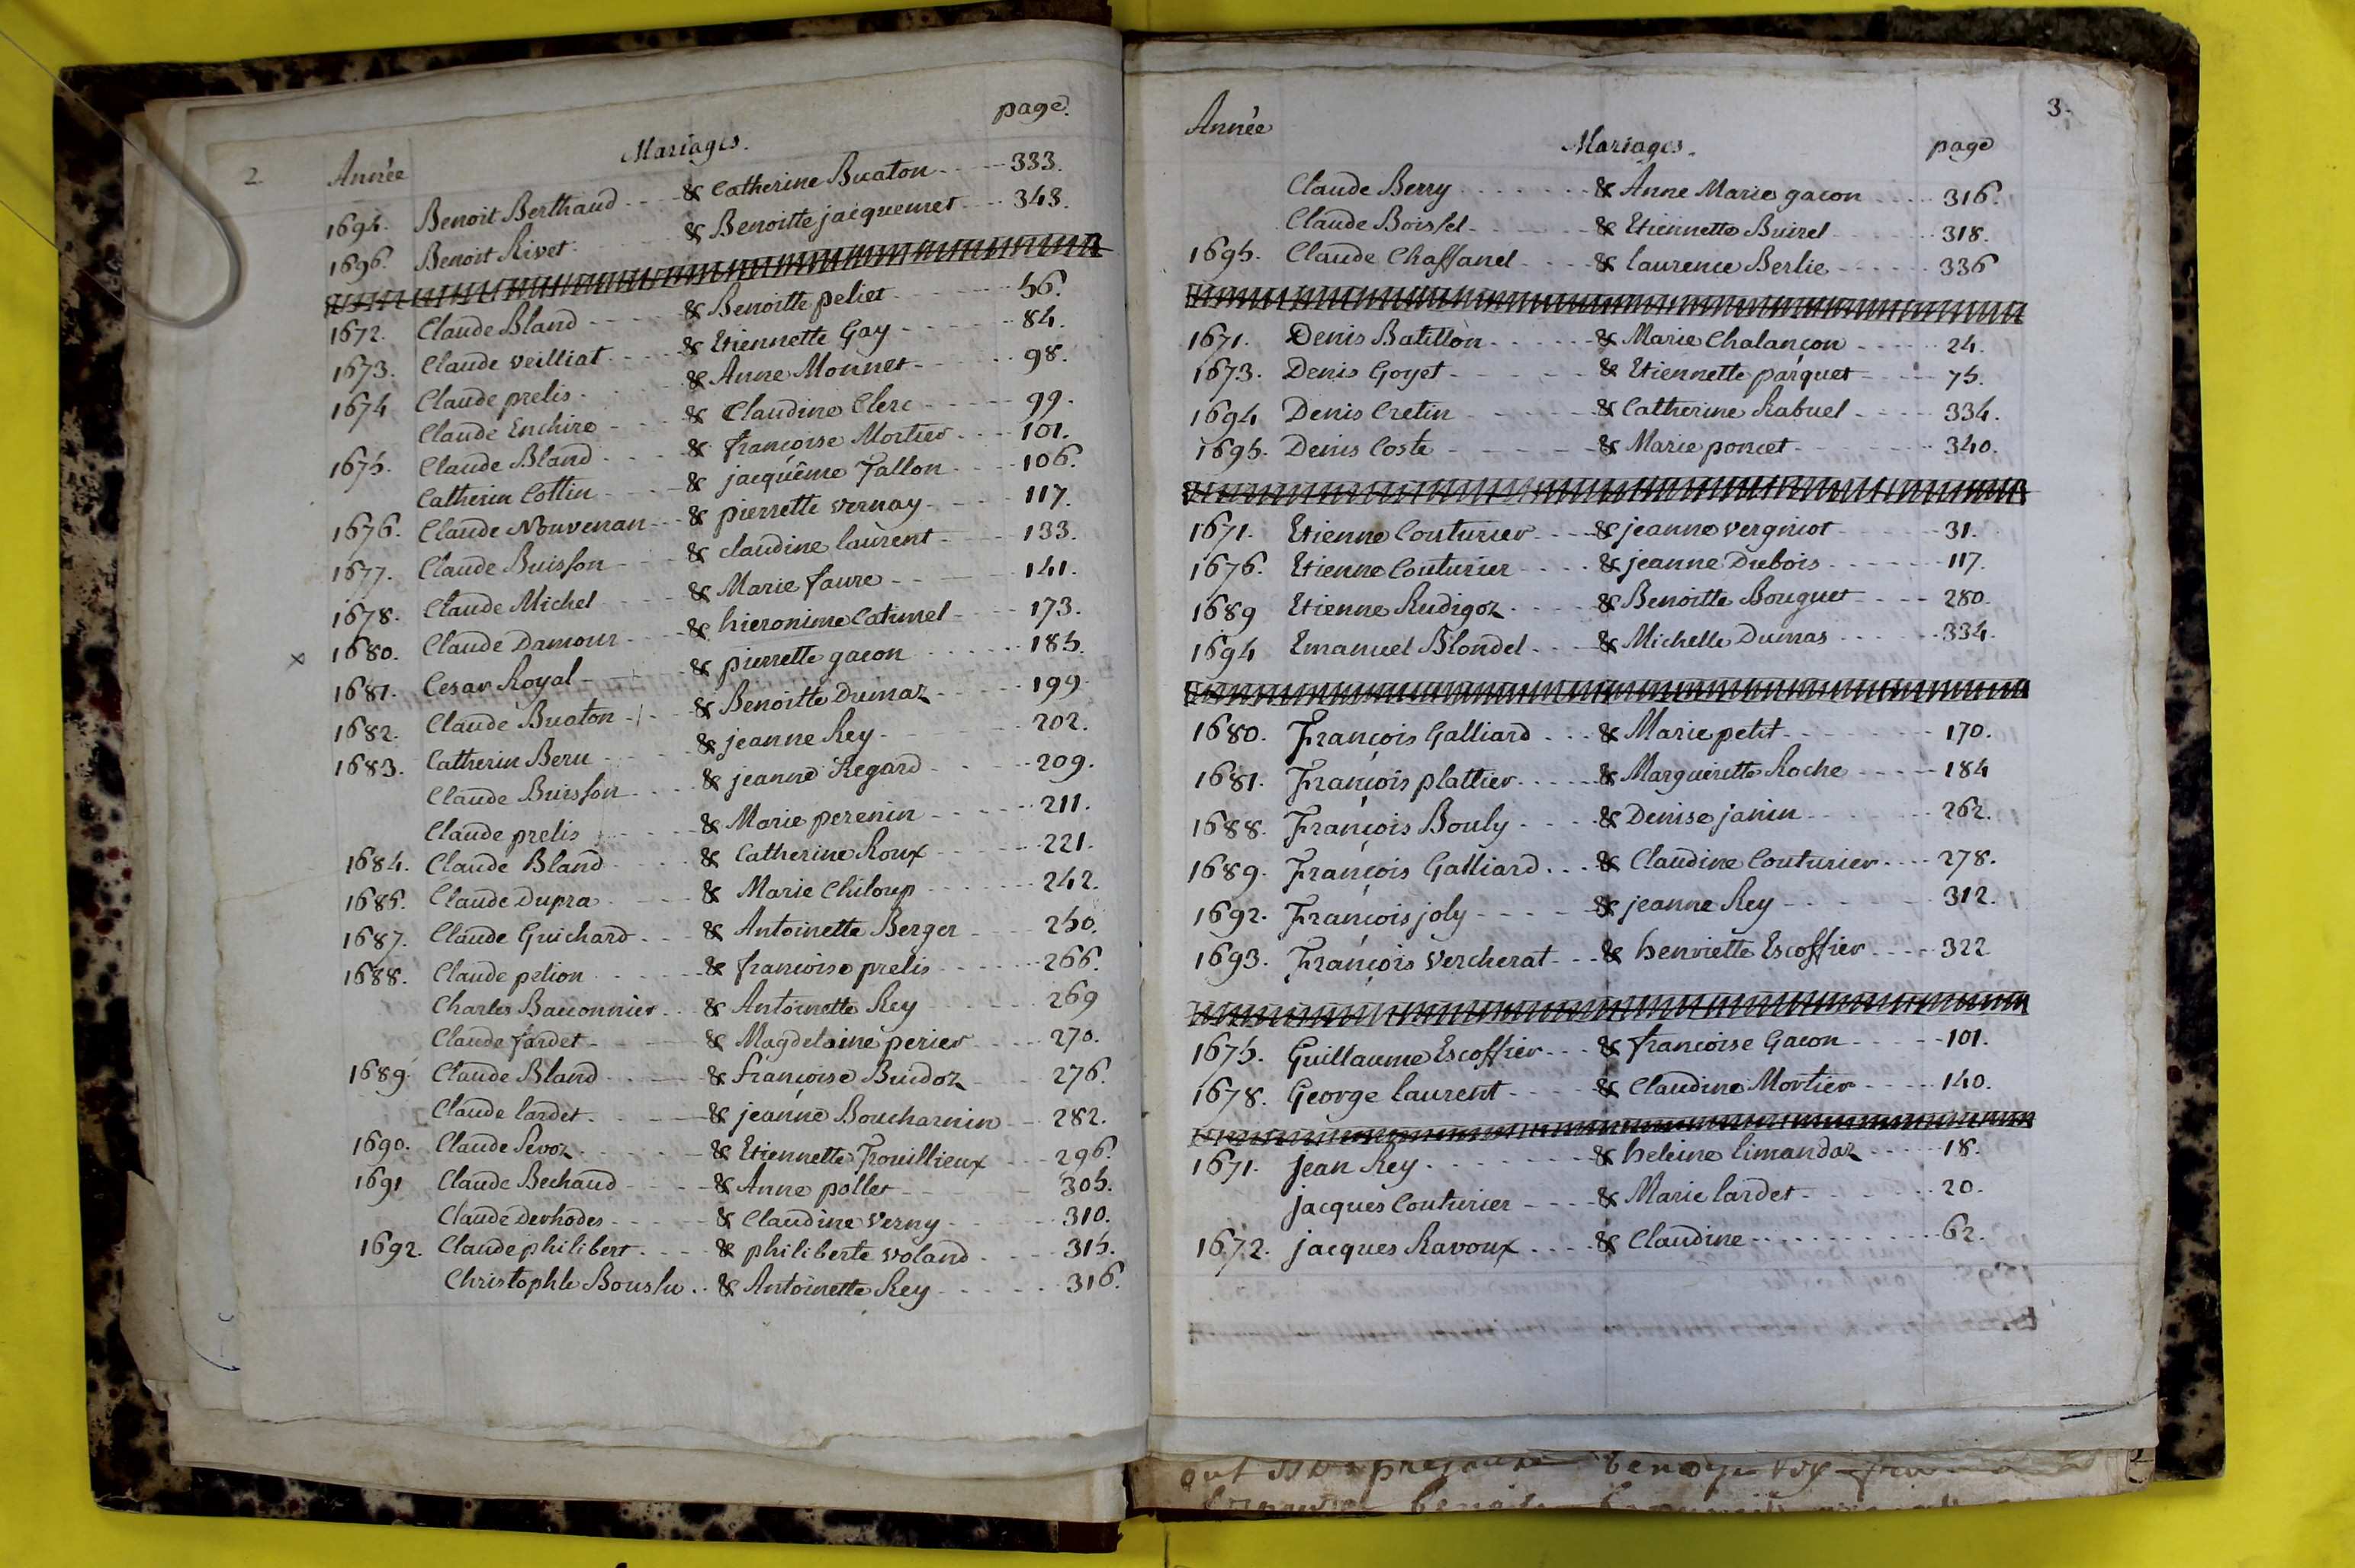 2.
Année Mariages. page.
1694. Benoit Berthaud & Catherine Buaton 333.
1696. Benoit Rivet & Benoitte jacquemet 343.
1672. Claude Bland & Benoitte peliet 56.
1673. Claude veilliat & Etiennette Gay 84.
1674 Claude prelis & Anne Monnet 98.
Claude Enchire & Claudine Clerc 99.
1675. Claude Bland & françoise Mortier 101.
Catherin Cottin & jacquême Tallon 106.
1676. Claude Nouvenan & pierrette vernay 117.
1677. Claude Buisson & claudine laurent 133.
1678. Claude Michel & Marie faure 141.
x 1680. Claude Damour & hieronime Catimel 173.
1681. Cesar Royal & pierrette gacon 185.
1682. Claude Buaton & Benoitte Dumaz 199.
1683. Catherin Beru & jeanne Rey 202.
Claude Buisson & jeanne Regard 209.
Claude prelis & Marie perenin 211.
1684. Claude Bland & Catherine Roux 221.
1685. Claude Dupra & Marie Chiloup 242.
1687. Claude Guichard & Antoinette Berger 250.
1688. Claude pelion & françoise prelis 266.
Charles Bauonnier & Antoinette Rey 269
Claude fardet & Magdelaine perier 270.
1689. Claude Bland & françoise Buidoz 276.
Claude lardet & jeanne Boucharnin 282.
1690. Claude Sevoz & Etiennette Trouillieux 296.
1691 Claude Bechaud & Anne pollet 305.
Claude Derhodes & Claudine Verny 310.
1692. Claude philibert & philiberte voland 315.
Christophle Bouslu & Antoinette Rey 316.
3.
Année Mariages. page
Claude Berry & Anne Marie gacon 316.
Claude Boissel & Etiennette Buirel 318.
1695. Claude Chaffanel & laurence Berlie 336
1671. Denis Batillon & Marie Chalançon 24.
1673. Denis Goyet & Etiennette parquet 75.
1694 Denis Cretin & Catherine Rabuel 334.
1695. Denis Coste & Marie poncet 340.
1671. Etienne Couturier & jeanne vergnicot 31.
1676. Etienne Couturier & jeanne Dubois 117.
1689 Etienne Rudigoz & Benoitte Bouquet 280.
1694 Emanuel Blondel & Michelle Dumas 334.
1680. François Galliard & Marie petit 170.
1681. François plattier & Margueritte Roche 184
1688. François Bouly & Denise janin 262.
1689. François Galliard & Claudine Couturier 278.
1692. François joly & jeanne Rey 312.
1693. François Vercherat & henriette Escoffier 322
1675. Guillaume Escoffier & françoise Gacon 101.
1678. George laurent & Claudine Mortier 140.
1671. jean Rey & heleine limandaz 18.
jacques Couturier & Marie lardet 20.
1672. jacques Ravoux & Claudine 62.